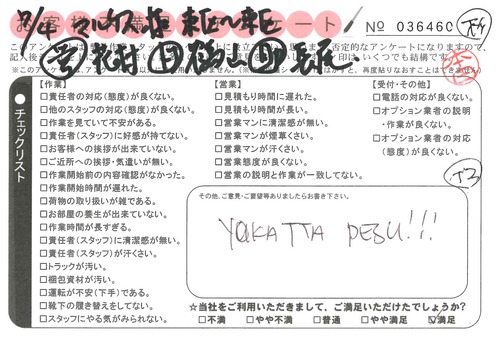 No 036460
記入後
※このアンケートは
【作業】
□責任者の対応(態度)が良くない。
□他のスタッフの対応(態度)が良くない。
□作業を見ていて不安がある。
□責任者(スタッフ)に好感が持てない。
□お客様への挨拶が出来ていない。
□ご近所への挨拶・気遣いが無い。
□作業開始前の内容確認がなかった。
□作業開始時間が遅れた。
□荷物の取り扱いが雑である。
□お部屋の養生が出来ていない。
□作業時間が長すぎる。
□責任者(スタッフ)に清潔感が無い。
□責任者(スタッフ)が汗くさい。
□トラックが汚い。
□梱包資材が汚い。
□運転が不安(下手)である。
□靴下の履き替えをしてない。
□スタッフにやる気がみられない。
【営業】
□見積もり時間に遅れた。
□見積もり時間が長い。
□営業マンに清潔感が無い。
□営業マンが煙草くさい。
□営業マンが汗くさい。
□営業態度が良くない。
□営業の説明と作業が一致してない。
【受付・その他】
□電話の対応が良くない。
□オプション業者の説明
・作業が良くない。
□オプション業者の対応
(態度)が良くない。
チェックリスト
その他、ご意見・ご要望等ありましたらお書き下さい。
YOKATTA DESU!!!
☆当社をご利用いただきまして、ご満足いただけたでしょうか?
□不満 □やや不満 □普通 □やや満足 ☑満足